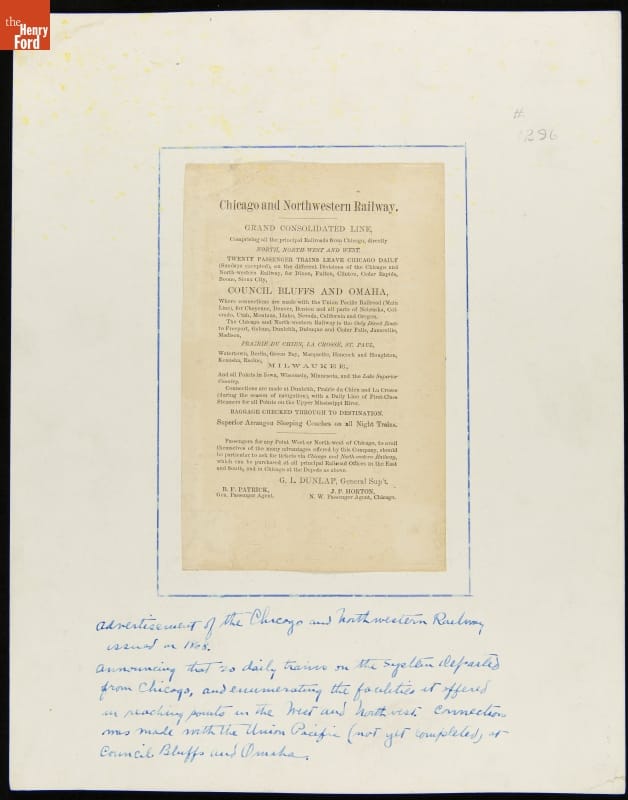 the
Henry
Ford
#
296
Chicago and Northwestern Railway.
GRAND CONSOLIDATED LINE,
Comprising all the principal Railroads from Chicago, directly
NORTH, NORTH-WEST AND WEST.
TWENTY PASSENGER TRAINS LEAVE CHICAGO DAILY
(Sundays excepted), on the different Divisions of the Chicago and
North-western Railway, for Dixon, Fulton, Clinton, Cedar Rapids,
Boone, Sioux City,
COUNCIL BLUFFS AND OMAHA,
Where connections are made with the Union Pacific Railroad (Main
Line), for Cheyenne, Denver, Benton and all parts of Nebraska, Col-
orado, Utah, Montana, Idaho, Nevada, California and Oregon.
The Chicago and North-western Railway is the Only Direct Route
to Freeport, Galena, Dunleith, Dubuque and Cedar Falls, Janesville,
Madison,
PRAIRIE DU CHIEN, LA CROSSE, ST. PAUL,
Watertown, Berlin, Green Bay, Marquette, Hancock and Houghton,
Kenosha, Racine,
MILWAUKEE,
And all Points in Iowa, Wisconsin, Minnesota, and the Lake Superior
Country.
Connections are made at Dunleith, Prairie du Chien and La Crosse
(during the season of navigation), with a Daily Line of First-Class
Steamers for all Points on the Upper Mississippi River.
BAGGAGE CHECKED THROUGH TO DESTINATION.
Superior Arrangon Sleeping Coaches on all Night Trains.
Passengers for any Point West or North-west of Chicago, to avail
themselves of the many advantages offered by this Company, should
be particular to ask for tickets via Chicago and North-western Railway,
which can be purchased at all principal Railroad Offices in the East
and South, and in Chicago at the Depots as above.
G. L. DUNLAP, General Sup't.
B. F. PATRICK, J. P. HORTON,
Gen. Passenger Agent. N. W. Passenger Agent, Chicago.
Advertisement of the Chicago and Northwestern Railway
issued in 1868.
Announcing that 20 daily trains on the System departed
from Chicago, and enumerating the facilities it offered
in reaching points in the West and Northwest. Connection
was made with the Union Pacific (not yet completed) at
Council Bluffs and Omaha.